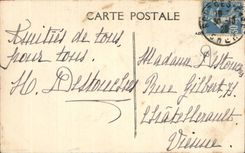 CARTE POSTALE
Amitiés de tous
pour tous.
H. Destouches
Madame Destouches
Rue Gilbert,
Châtellerault
Vienne